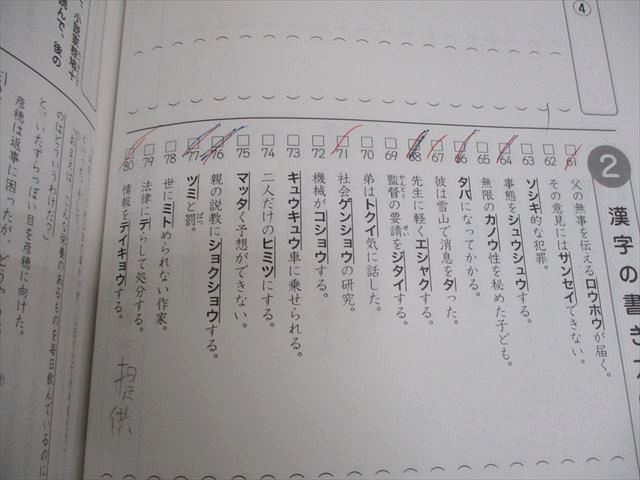 ④
2 漢字の書き
61 父の無事を伝えるロウホウが届く。
62 その意見にはサンセイできない。
63 ソシキ的な犯罪。
64 事態をシュウシュウする。
65 無限のカノウ性を秘めた子ども。
66 タバになってかかる。
67 彼は雪山で消息をタった。
68 先生に軽くエシャクする。
69 監督の要請をジタイする。
かんとく せい
70 弟はトクイ気に話した。
71 社会ゲンショウの研究。
72 機械がコショウする。
73 キュウキュウ車に乗せられる。
74 二人だけのヒミツにする。
75 マッタく予想ができない。
76 親の説教にショクショウする。
77 ツミと罰。
ばつ
78 世にミトめられない作家。
79 法律にテらして処分する。
80 情報をテイキョウする。
提供
んで、後の
と、いたずらっぽい目を彦穂に向けた。
彦穂は返事に困ったが、